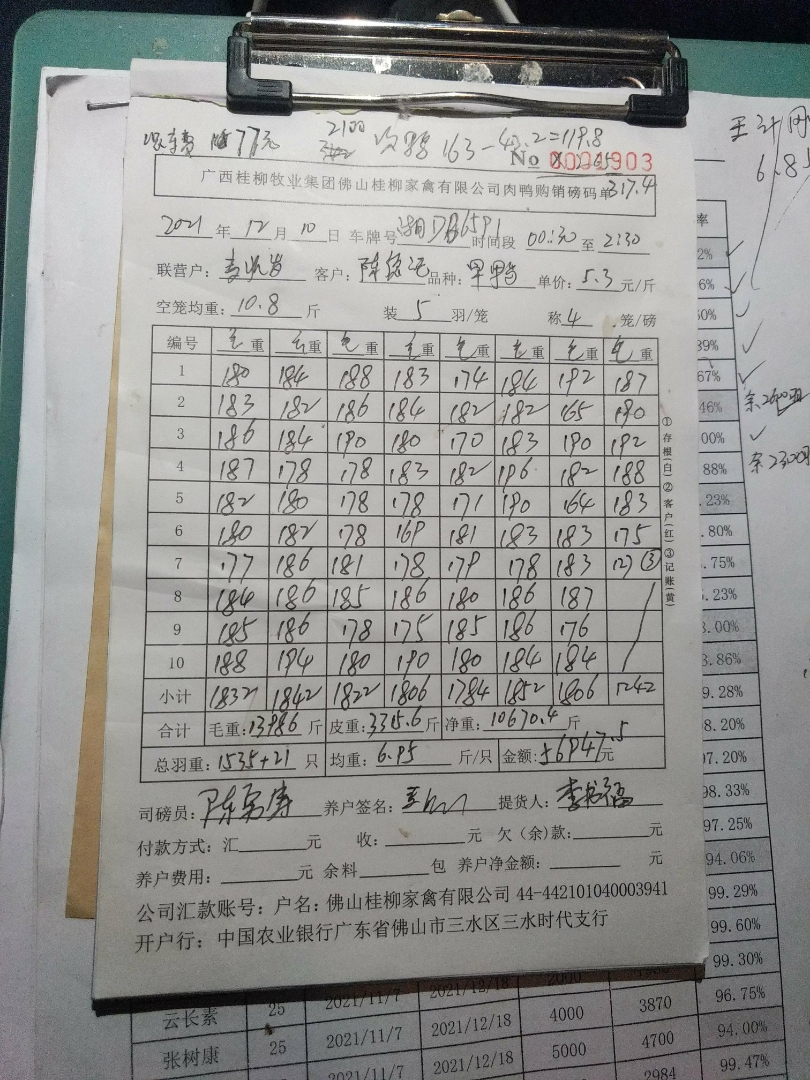 77元 2100 163-43.2=119.8
No 0001903
317.4
广西桂柳牧业集团佛山桂柳家禽有限公司肉鸭购销磅码单
2021 年 12 月 10 日 车牌号 湘DB6591 时间段 00:30 至 2:30
联营户： 客户： 品种： 单价：5.3 元/斤
空笼均重：10.8 斤 装 5 羽/笼 称 4 笼/磅
编号 毛重 毛重 毛重 毛重 毛重 毛重 毛重 毛重
1 180 184 188 183 174 184 192 187
2 183 182 186 184 182 182 165 190
3 186 184 190 180 170 183 190 192
4 187 178 178 183 182 196 182 188
5 182 180 178 178 171 190 164 183
6 180 182 178 169 181 183 183 175
7 177 186 181 178 179 178 183 127 ③
8 184 186 185 186 180 186 187
9 185 186 178 175 185 186 176
10 188 194 180 190 180 184 184
小计 1832 1842 1822 1806 1784 1852 1806 1242
合计 毛重：13986 斤 皮重：3315.6 斤 净重：10670.4 斤
总羽重：1535+21 只 均重：6.95 斤/只 金额：56947.5 元
司磅员： 养户签名： 提货人：
付款方式：汇 元 收： 元 欠（余）款： 元
养户费用： 元 余料 包 养户净金额： 元
公司汇款账号：户名：佛山桂柳家禽有限公司 44-442101040003941
开户行：中国农业银行广东省佛山市三水区三水时代支行
①存根（白）②客户（红）③记账（黄）
6.85
率
2%
6%
50%
39%
67%
46%
00%
88%
.23%
.80%
.75%
.23%
.00%
3.86%
9.28%
8.20%
97.20%
98.33%
97.25%
94.06%
99.29%
99.60%
99.30%
云长素 25 2021/11/7 2021/12/18 4000 3870 96.75%
张树康 25 2021/11/7 2021/12/18 5000 4700 94.00%
2021/11/7 2021/12/18 2984 99.47%